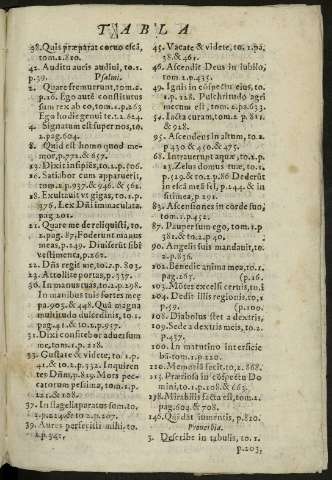 TABLA
38. Quis præparat coruo escã,
tom. 2. 810.
42. Auditu auris audiui, to. 1.
p. 39. Psalmi.
2. Quare fremuerunt, tom. 2.
p. 16. Ego autẽ constitutus
sum rex ab eo, tom. 1. p. 263
Ego hodie genui te. t. 2. 624.
4. Signatum est super nos, to
2. pag. 604.
8. Quid est homo quod me-
mor, p. 772. & 657.
15. Dixi: insipiẽs, to. 2. p. 506.
16. Satiabor cum apparuerit,
tom. 2. p. 937. & 946. & 562.
18. Exultauit vt gigas, to. 1. p.
976. Lex Dñi immaculata.
pag. 201.
21. Quare me dereliquisti, to.
2. pag. 87. Foderunt manus
meas, p. 149. Diuiserũt sibi
vestimenta, p. 262.
22. Dñs regit me, to. 2. p. 803.
23. Attollite portas, p. 337.
30. In manus tuas, to. 2. p. 298.
In manibus tuis sortes meę
pa. 903. & 448. Quã magna
multitudo dulcedinis, to. 1
pag. 41. & to. 2. p. 957.
31. Dixi confitebor aduersum
me tom. 1. p. 218.
33. Gustate & videte, to. 1. p.
41. & to. 2. p. 332. Inquiren
tes Dñũ, p. 829. Mors pec-
catorum pessima, tom. 1. p.
121. & 108.
37. In flagella paratus sum. to.
2. p. 202.
39. Aures perfecisti mihi. to.
2. p. 341.
45. Vacate & videte, to. 1. pa.
38. & 461.
46. Ascendit Deus in iubilo,
tom. 2. p. 435.
49. Ignis in cõspectu eius, to.
1. p. 128. Pulchritudo agri
mecum est, tom. 2. pa. 633.
54. Iacta curam, tom. 2. p. 811.
& 928.
95. Ascendens in altum, to. 2
p. 430 & 450. & 475.
68. Intrauerunt aquæ, to. 2. p.
23. Zelus domus tuæ, to. 1.
p. 529. & to. 2. p. 86 Dederũt
in escã meã fel, p. 244. & in
siti mea, p. 291.
83. Ascensiones in corde suo,
tom. 2. p. 452.
87. Pauper sum ego, tom. 1. p
381. & to. 2. p. 40.
90. Angelis suis mandauit, to.
2. p. 836.
102. Benedic anima mea, to. 1.
pag. 267. (p. 16.
103. Mõtes excelsi ceruis, to. 1
104. Dedit illis regionis, to. 1
p. 59. (p. 100.
108. Diabolus stet a dextris,
109. Sede a dextris meis, to. 2
p. 437.
100. In matutino interficie
bã tom. 1. p. 220.
110. Memoriã fecit, to. 2. 868.
115. Præciosa in cõspectu Do
mini, to. 1. p. 108. & 665.
138. Mirabilis facta est, tom. 2
pag. 604. & 708.
146. Qui dat iumentis, p. 820.
Prouerbia.
3. Describe in tabulis, to. 1
p. 203,